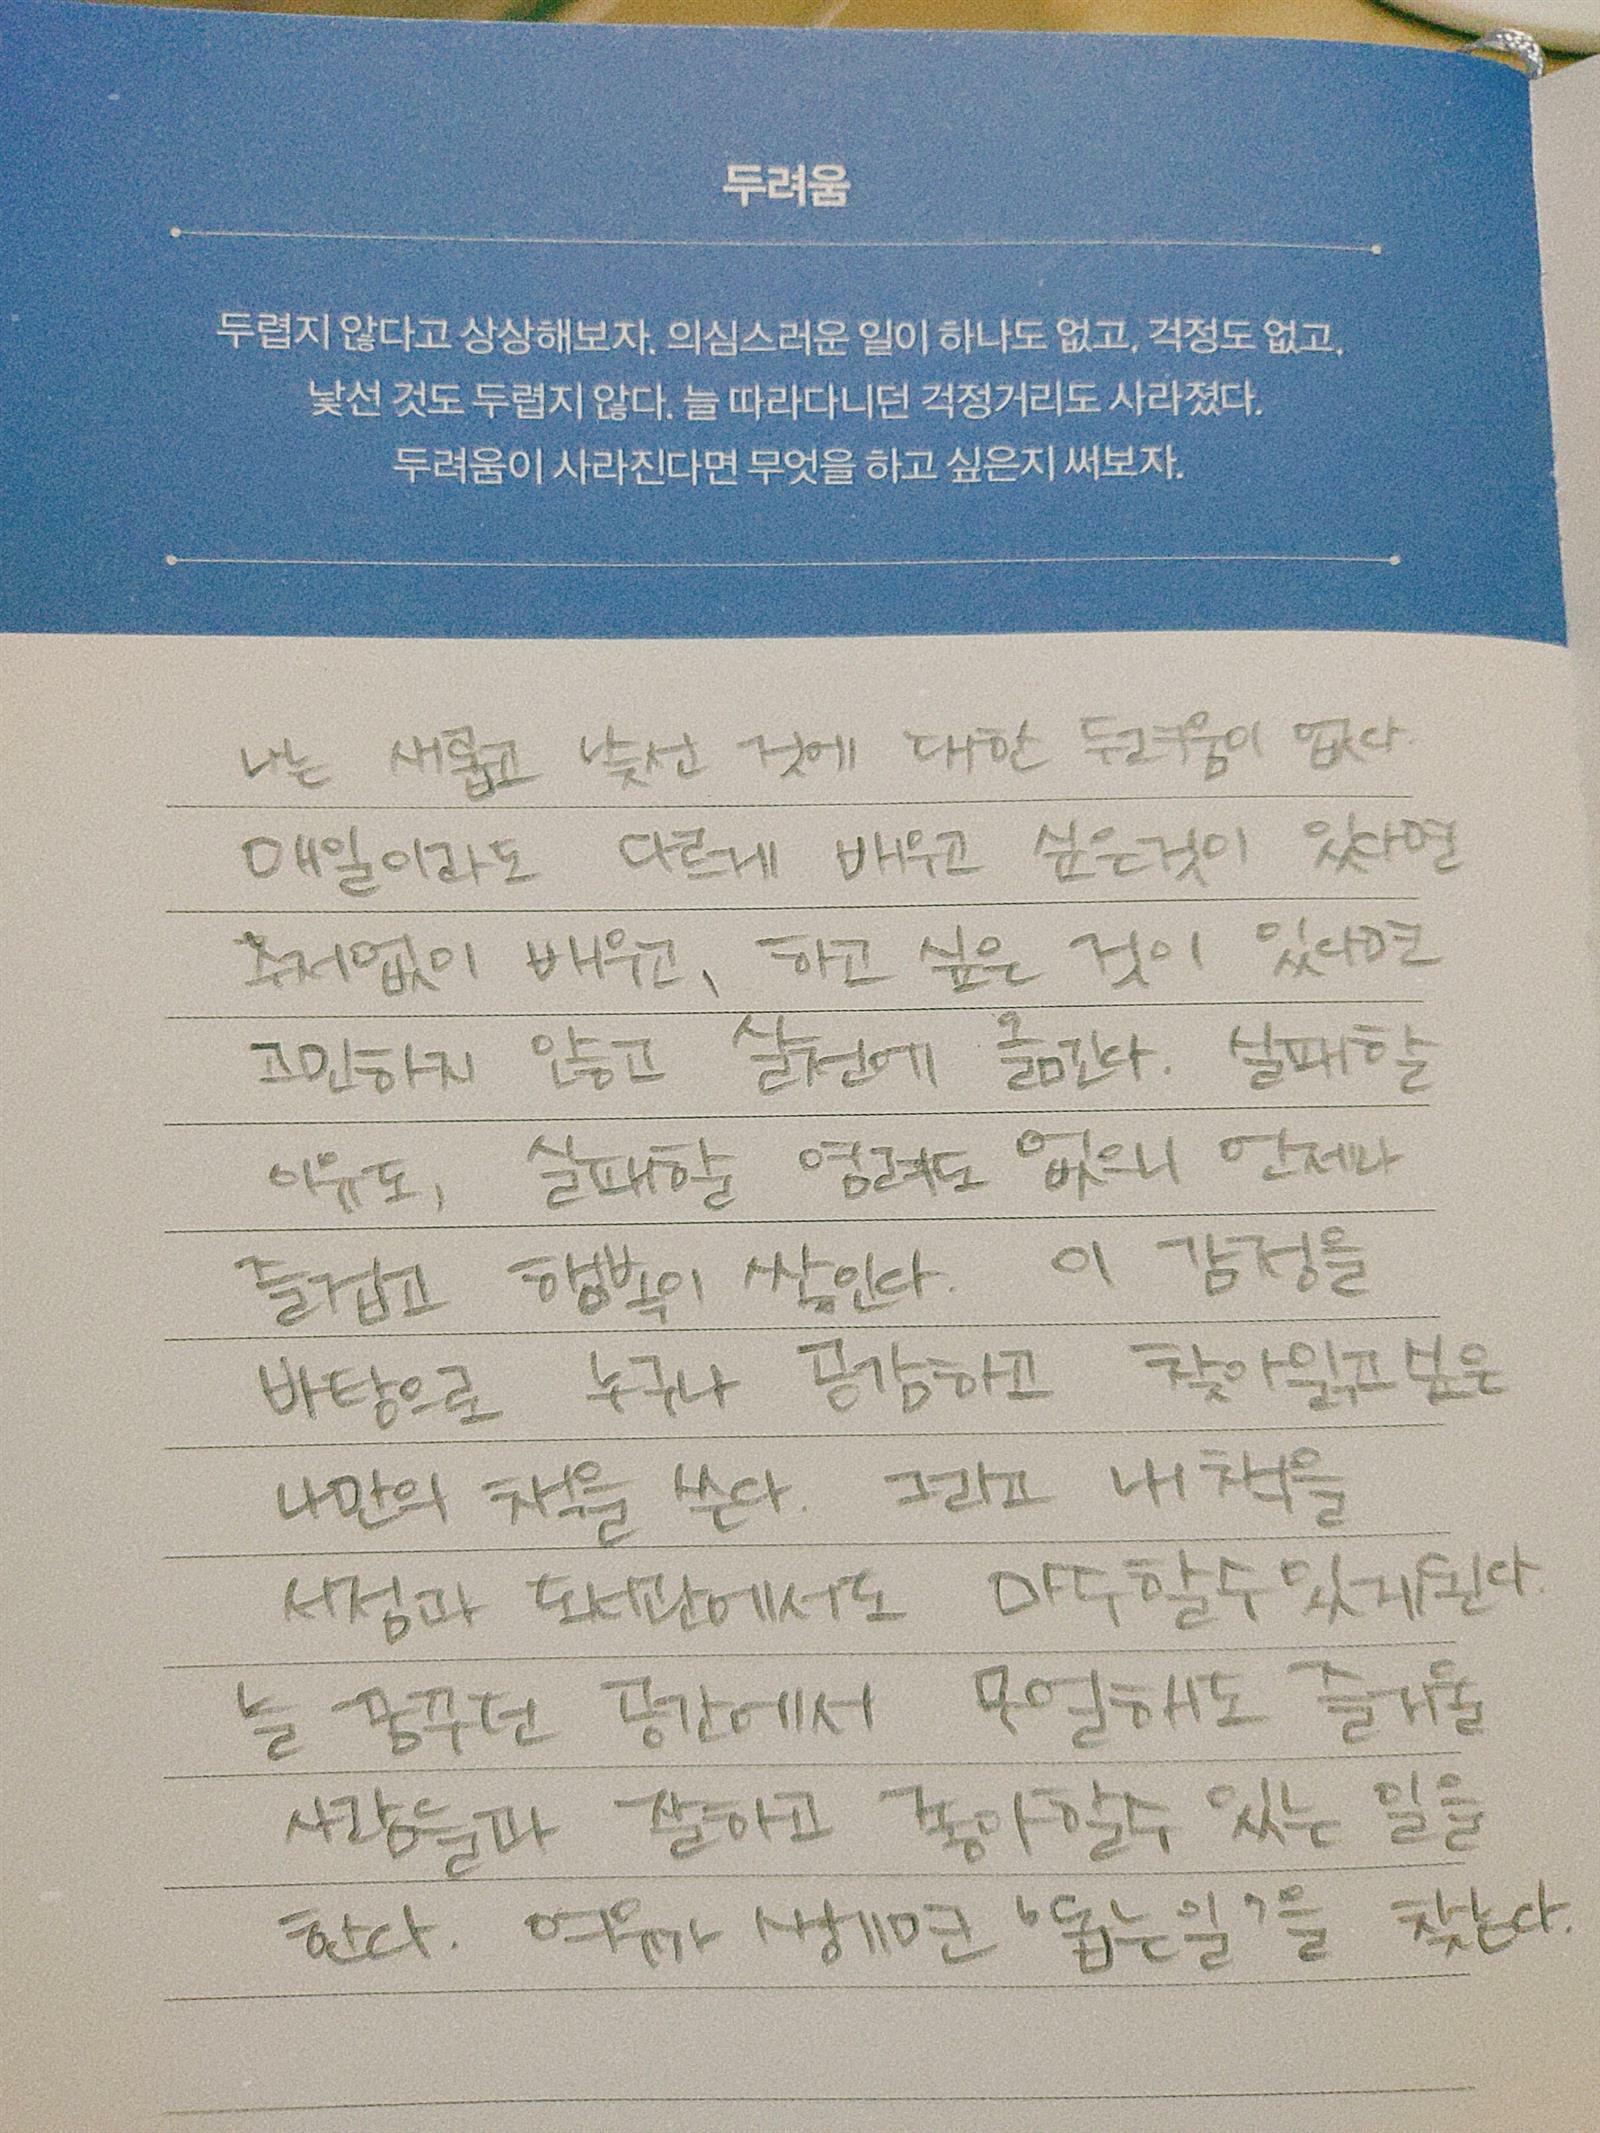 두려움
두렵지 않다고 상상해보자. 의심스러운 일이 하나도 없고, 걱정도 없고,
낯선 것도 두렵지 않다. 늘 따라다니던 걱정거리도 사라졌다.
두려움이 사라진다면 무엇을 하고 싶은지 써보자.
나는 새롭고 낯선 것에 대한 두려움이 없다.
매일이라도 다르게 배우고 싶은것이 있다면
주저없이 배우고, 하고 싶은 것이 있다면
고민하지 않고 실천에 옮긴다. 실패할
이유도, 실패할 염려도 없으니 언제나
즐겁고 행복이 쌓인다. 이 감정을
바탕으로 누구나 공감하고 찾아읽고싶은
나만의 책을 쓴다. 그리고 내 책을
서점과 도서관에서도 마주할수있게된다.
늘 꿈꾸던 공간에서 무얼해도 즐거울
사람들과 잘하고 좋아할수 있는 일을
한다. 여유가 생기면 '돕는일'을 찾는다.